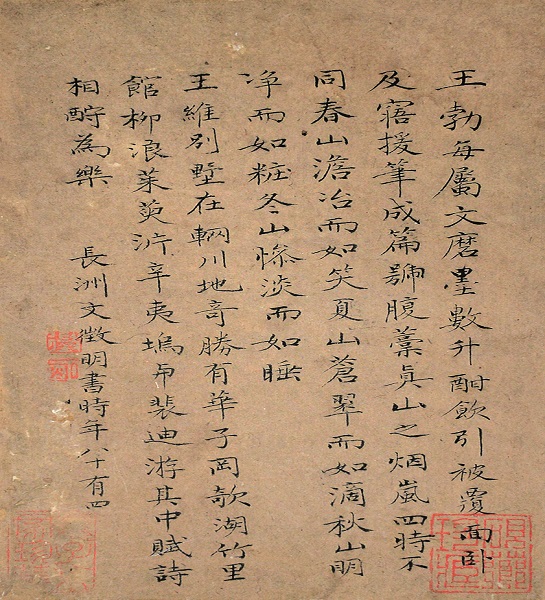 王勃每屬文磨墨數升酣飲引被覆面卧
及寤援筆成篇號腹藁真山之烟嵐四時不
同春山澹冶而如笑夏山蒼翠而如滴秋山明
净而如粧冬山慘淡而如睡
王維別墅在輞川地奇勝有華子岡欹湖竹里
館柳浪茱萸沜辛夷塢与裴迪游其中賦詩
相酧為樂　長洲文徵明書時年八十有四